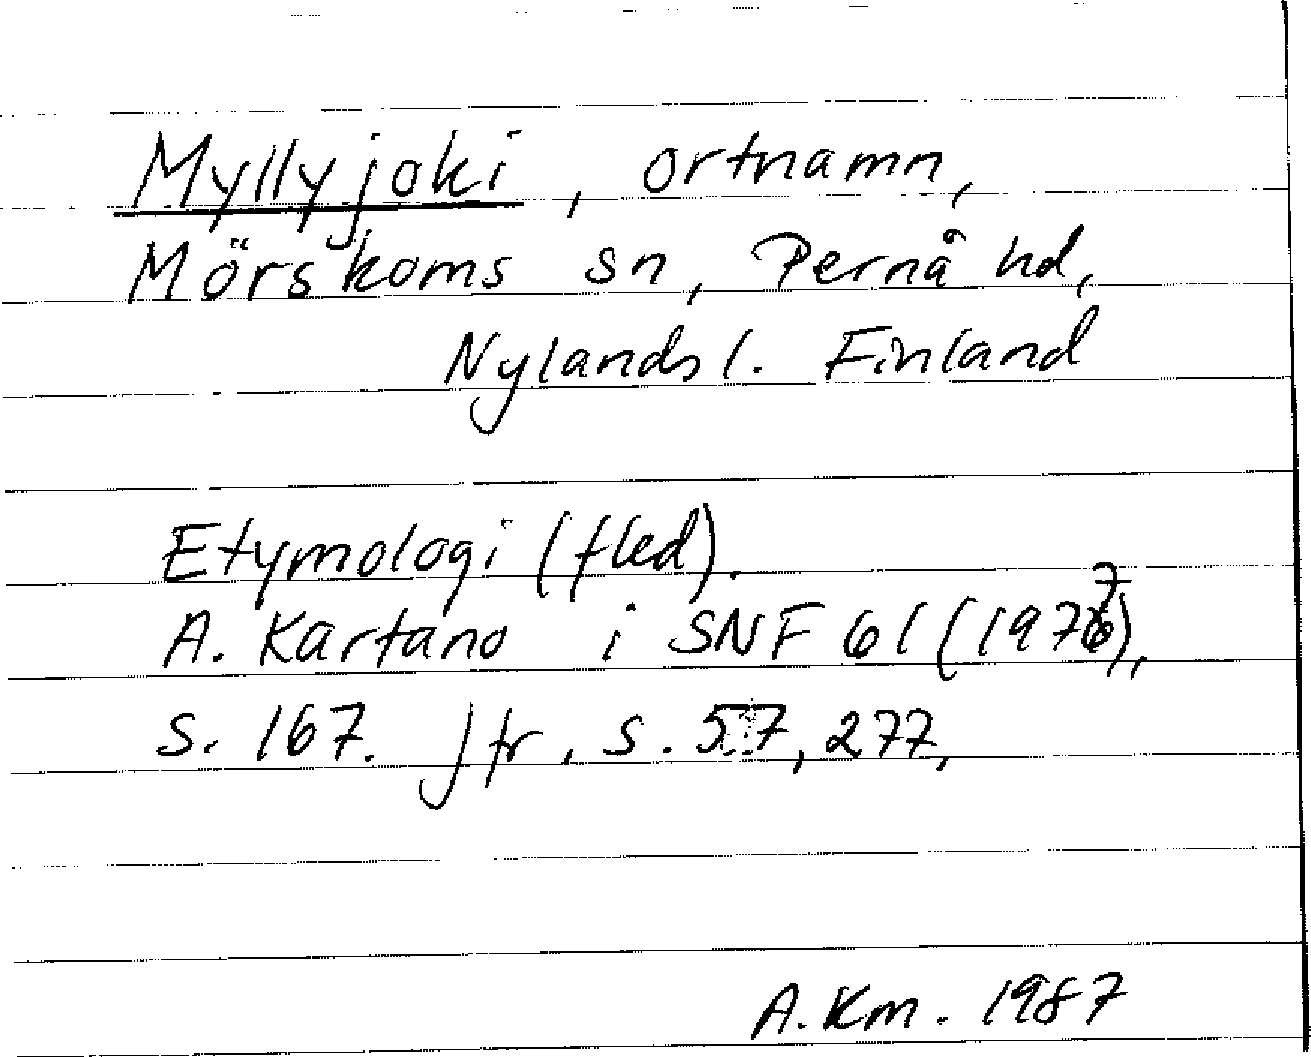 Myllyjoki, ortnamn,
Mörskoms sn, Pernå hd,
Nylands l. Finland
Etymologi (fled).
A. Kartano i SNF 61 (1977),
s. 167. Jfr. s. 57, 277,
A. Km. 1987